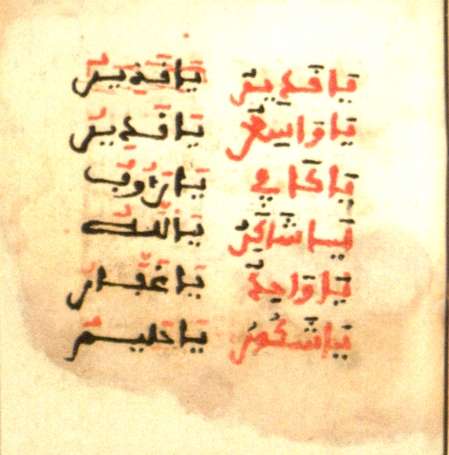 يا قدير يا قدير
يا واسع يا قدير
يا كافي يا رؤوف
يا شاكر يا الله
يا واحد يا غفار
يا شكور يا حليم